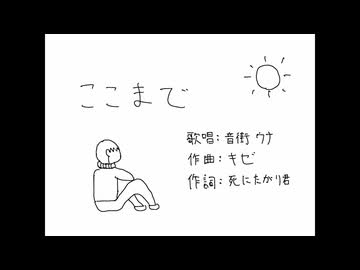 ここまで
歌唱：音街ウナ
作曲：キゼ
作詞：死にたがり君